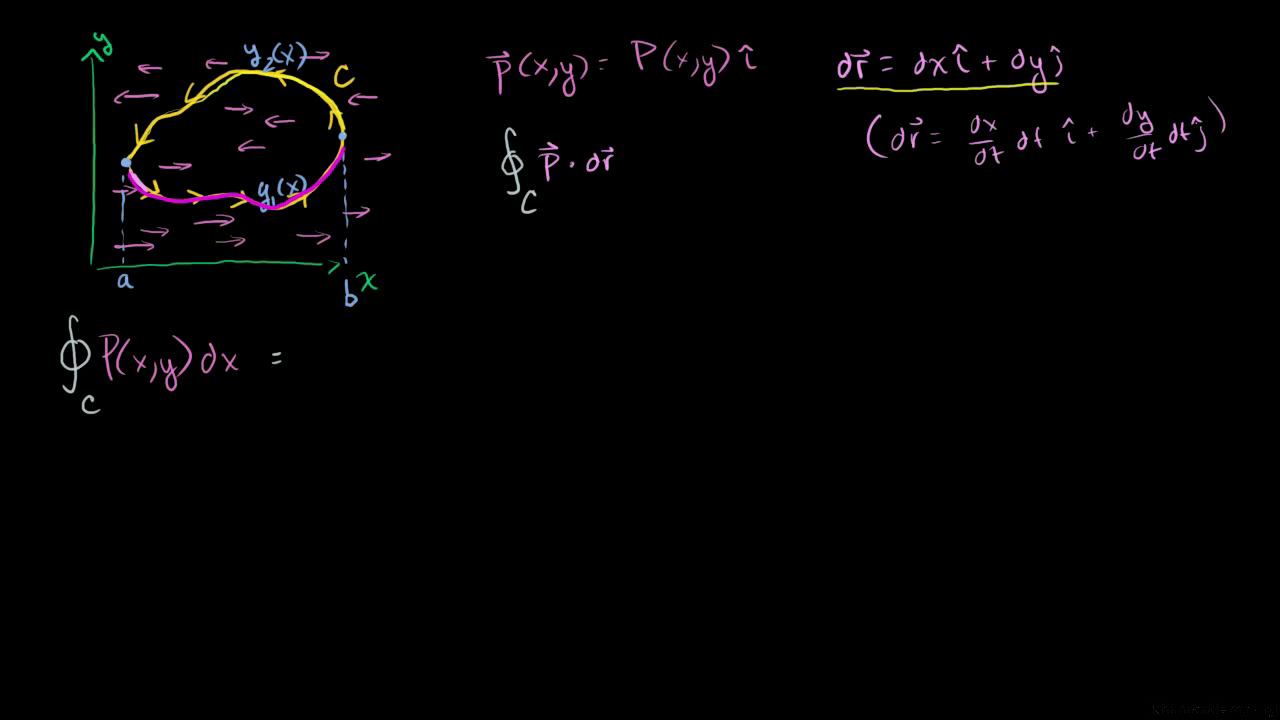 y
y₂(x)
C
y₁(x)
a
b
x
p⃗(x,y) = P(x,y) î
∮_C p⃗ · dr⃗
dr⃗ = dx î + dy ĵ
(dr⃗ = dx/dt dt î + dy/dt dt ĵ)
∮_C P(x,y) dx =